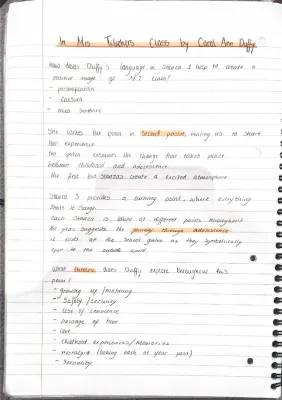 In Mrs Tilschers Class by Carol Ann Duffy
How does Duffy's language in Stanza 1 help to create a
positive image of M.T class?
- personification
- caesura
- minor sentence
She writes the poem in second person, making us to share
her experience.
The poem examines the change that takes place
between childhood and adolescence
The first two stanzas create a excited atmosphere
Stanza 3 provides a turning point, where everything
starts to change.
Each stanza is taken at different points throughout
the year suggests the journey through adolescence
it ends at the school gates as they symbolically
open to the outside world.
What themes does Duffy explore throughout this
poem?
- growing up / maturing
- Safety / security
- Loss of innocence
- passage of time
- Love
- childhood experiences / memories
- nostalgia (looking back at your past)
- Sexuality